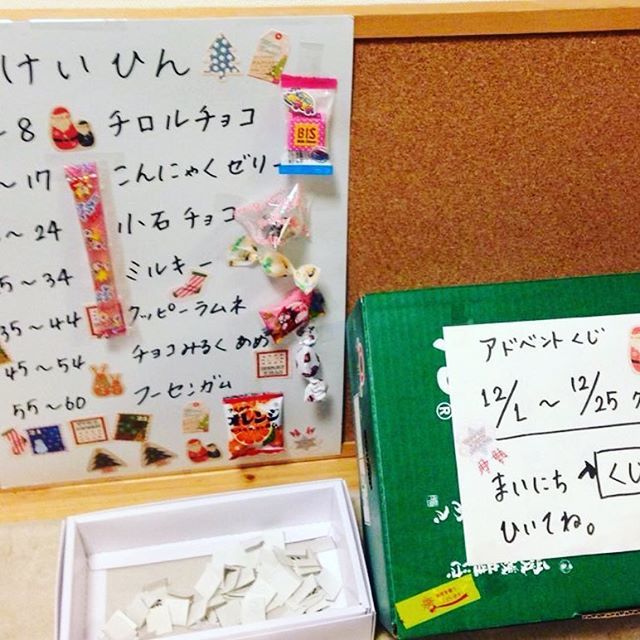 けいひん
～8 チロルチョコ
～17 こんにゃくゼリー
～24 小石チョコ
5～34 ミルキー
35～44 クッピーラムネ
45～54 チョコみるくあめ
55～60 フーセンガム
BIS
オレンジ
アドベントくじ
12/1～12/25
まいにち くじ
ひいてね。